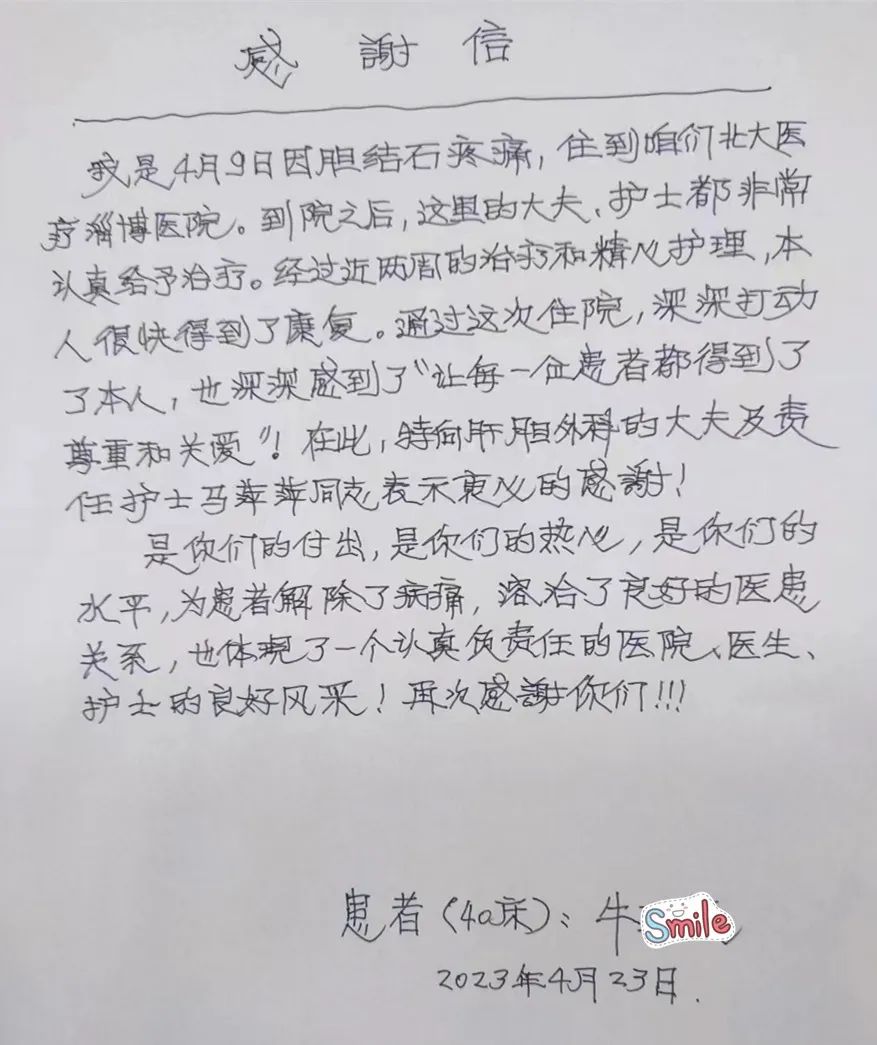 感謝信
我是4月9日因胆结石疼痛，住到咱们北大医
疗淄博医院。到院之后，这里的大夫、护士都非常
认真给予治疗。经过近两周的治疗和精心护理，本
人很快得到了康复。通过这次住院，深深打动
了本人，也深深感到了“让每一位患者都得到了
尊重和关爱”！在此，特向肝胆外科的大夫及责
任护士马萍萍同志表示衷心的感謝！
是你们的付出，是你们的热心，是你们的
水平，为患者解除了病痛，溶洽了良好的医患
关系，也体现了一个认真负责任的医院、医生、
护士的良好风采！再次感謝你们!!!
患者（40床）：牛
Smile
2023年4月23日.